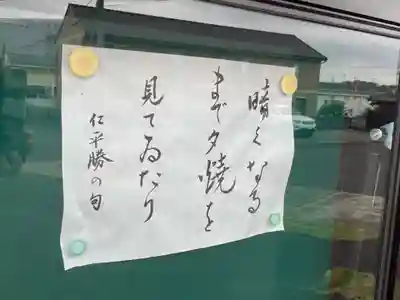 暗くなる
まで夕焼を
見てゐたり
仁平勝の句